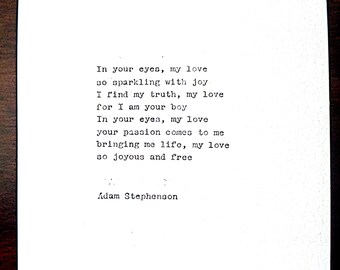 In your eyes, my love
so sparkling with joy
I find my truth, my love
for I am your boy
In your eyes, my love
your passion comes to me
bringing me life, my love
so joyous and free
Adam Stephenson